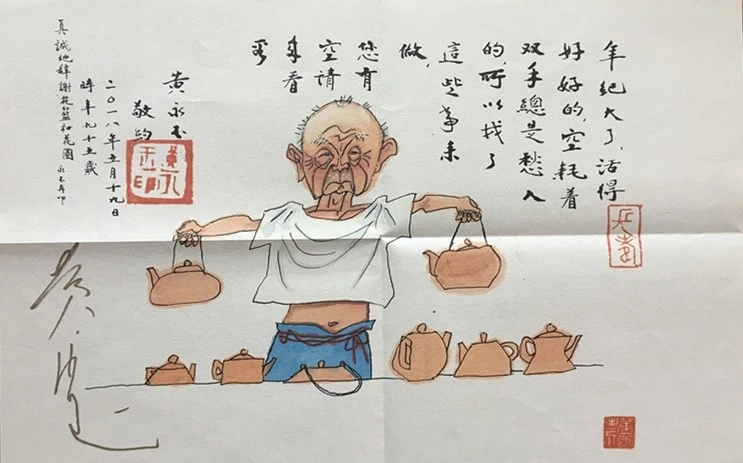 年纪大了，活得
好好的空耗着
双手總是愁人
的，所以找了
這些事来
做，
您有
空请
来看
看
黄永玉
敬约
二〇一八年五月十九日
時年九十五歲
真誠地辞謝花籃和花圈 永玉再叩
黄永玉印